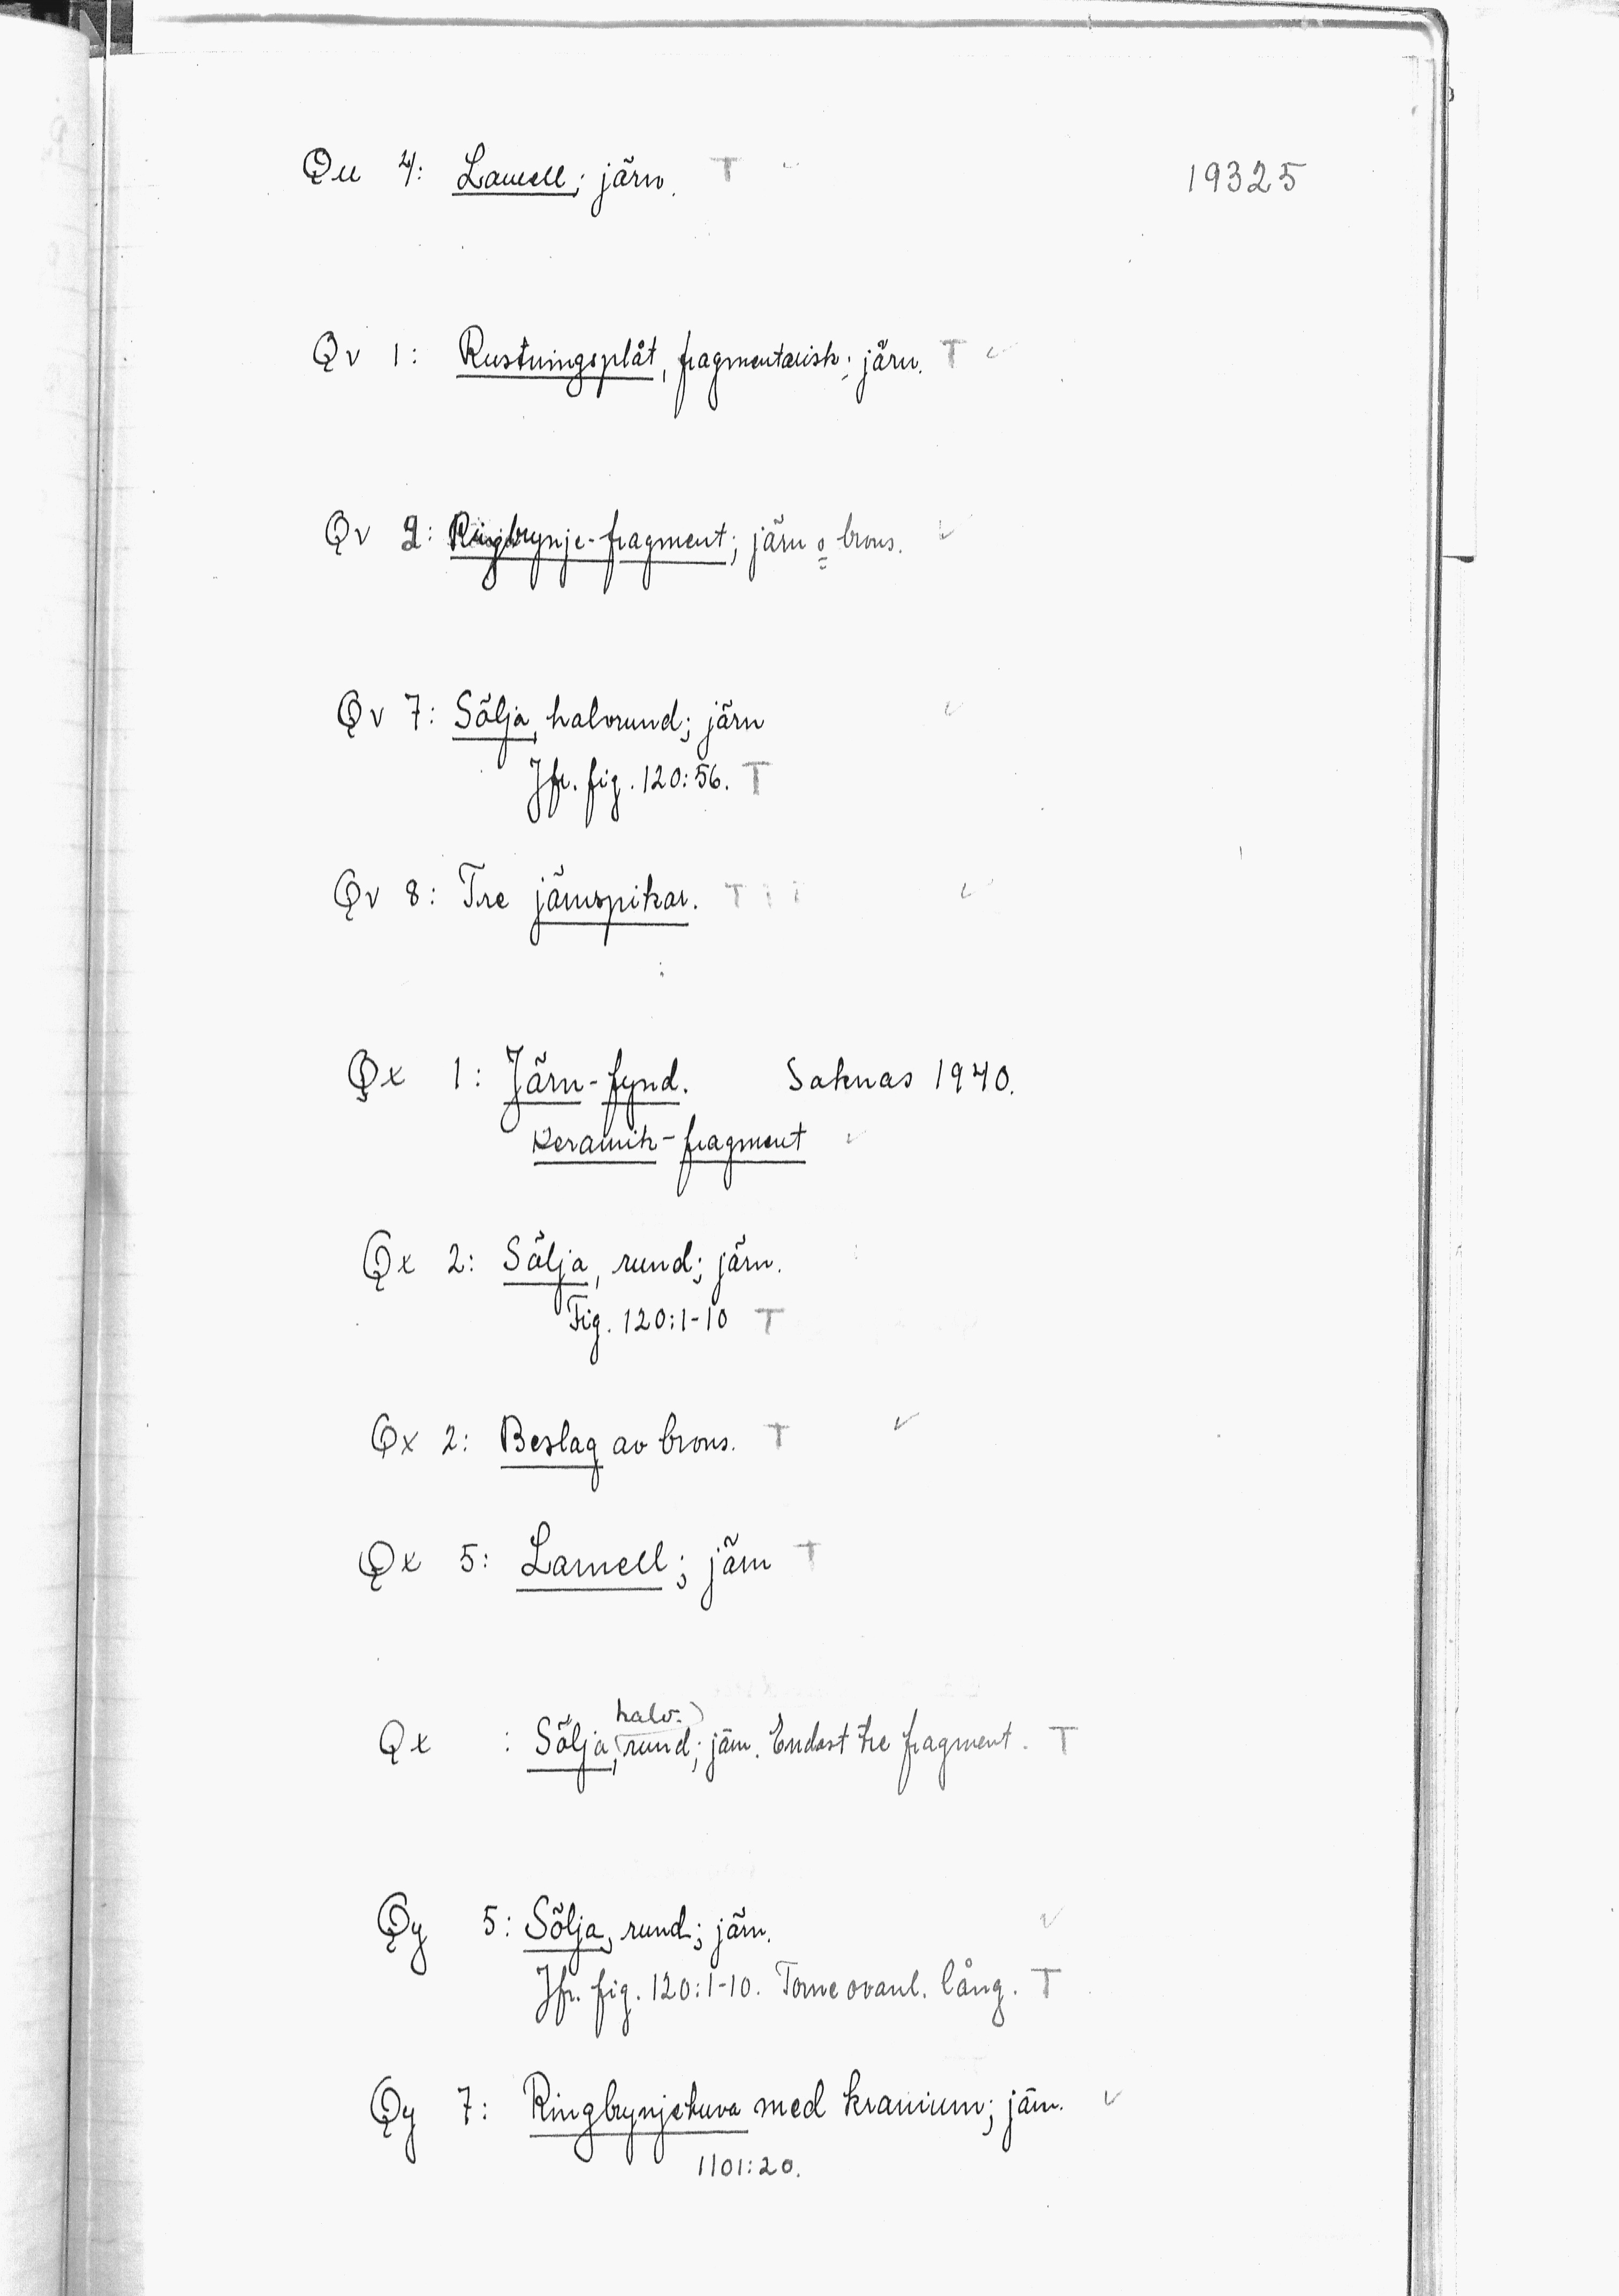 Qu 4: Lamell; järn. T ✓ 19325
Qv 1: Rustningsplåt, fragmentarisk; järn. T ✓
Qv 2: Ringbrynje-fragment; järn o brons. ✓
Qv 7: Sölja, halvrund; järn ✓
Jfr. fig. 120:56. T
Qv 8: Tre järnspikar. T T T ✓
Qx 1: Järn-fynd. Saknas 1940.
Keramik-fragment ✓
Qx 2: Sölja, rund; järn.
Fig. 120:1-10 T
Qx 2: Beslag av brons. T ✓
Qx 5: Lamell; järn T
halv-
Qx : Sölja, rund; järn. Endast tre fragment. T
Qy 5: Sölja, rund; järn. ✓
Jfr. fig. 120:1-10. Torne ovanl. lång. T
Qy 7: Ringbrynjehuva med kranium; järn. ✓
1101:20.